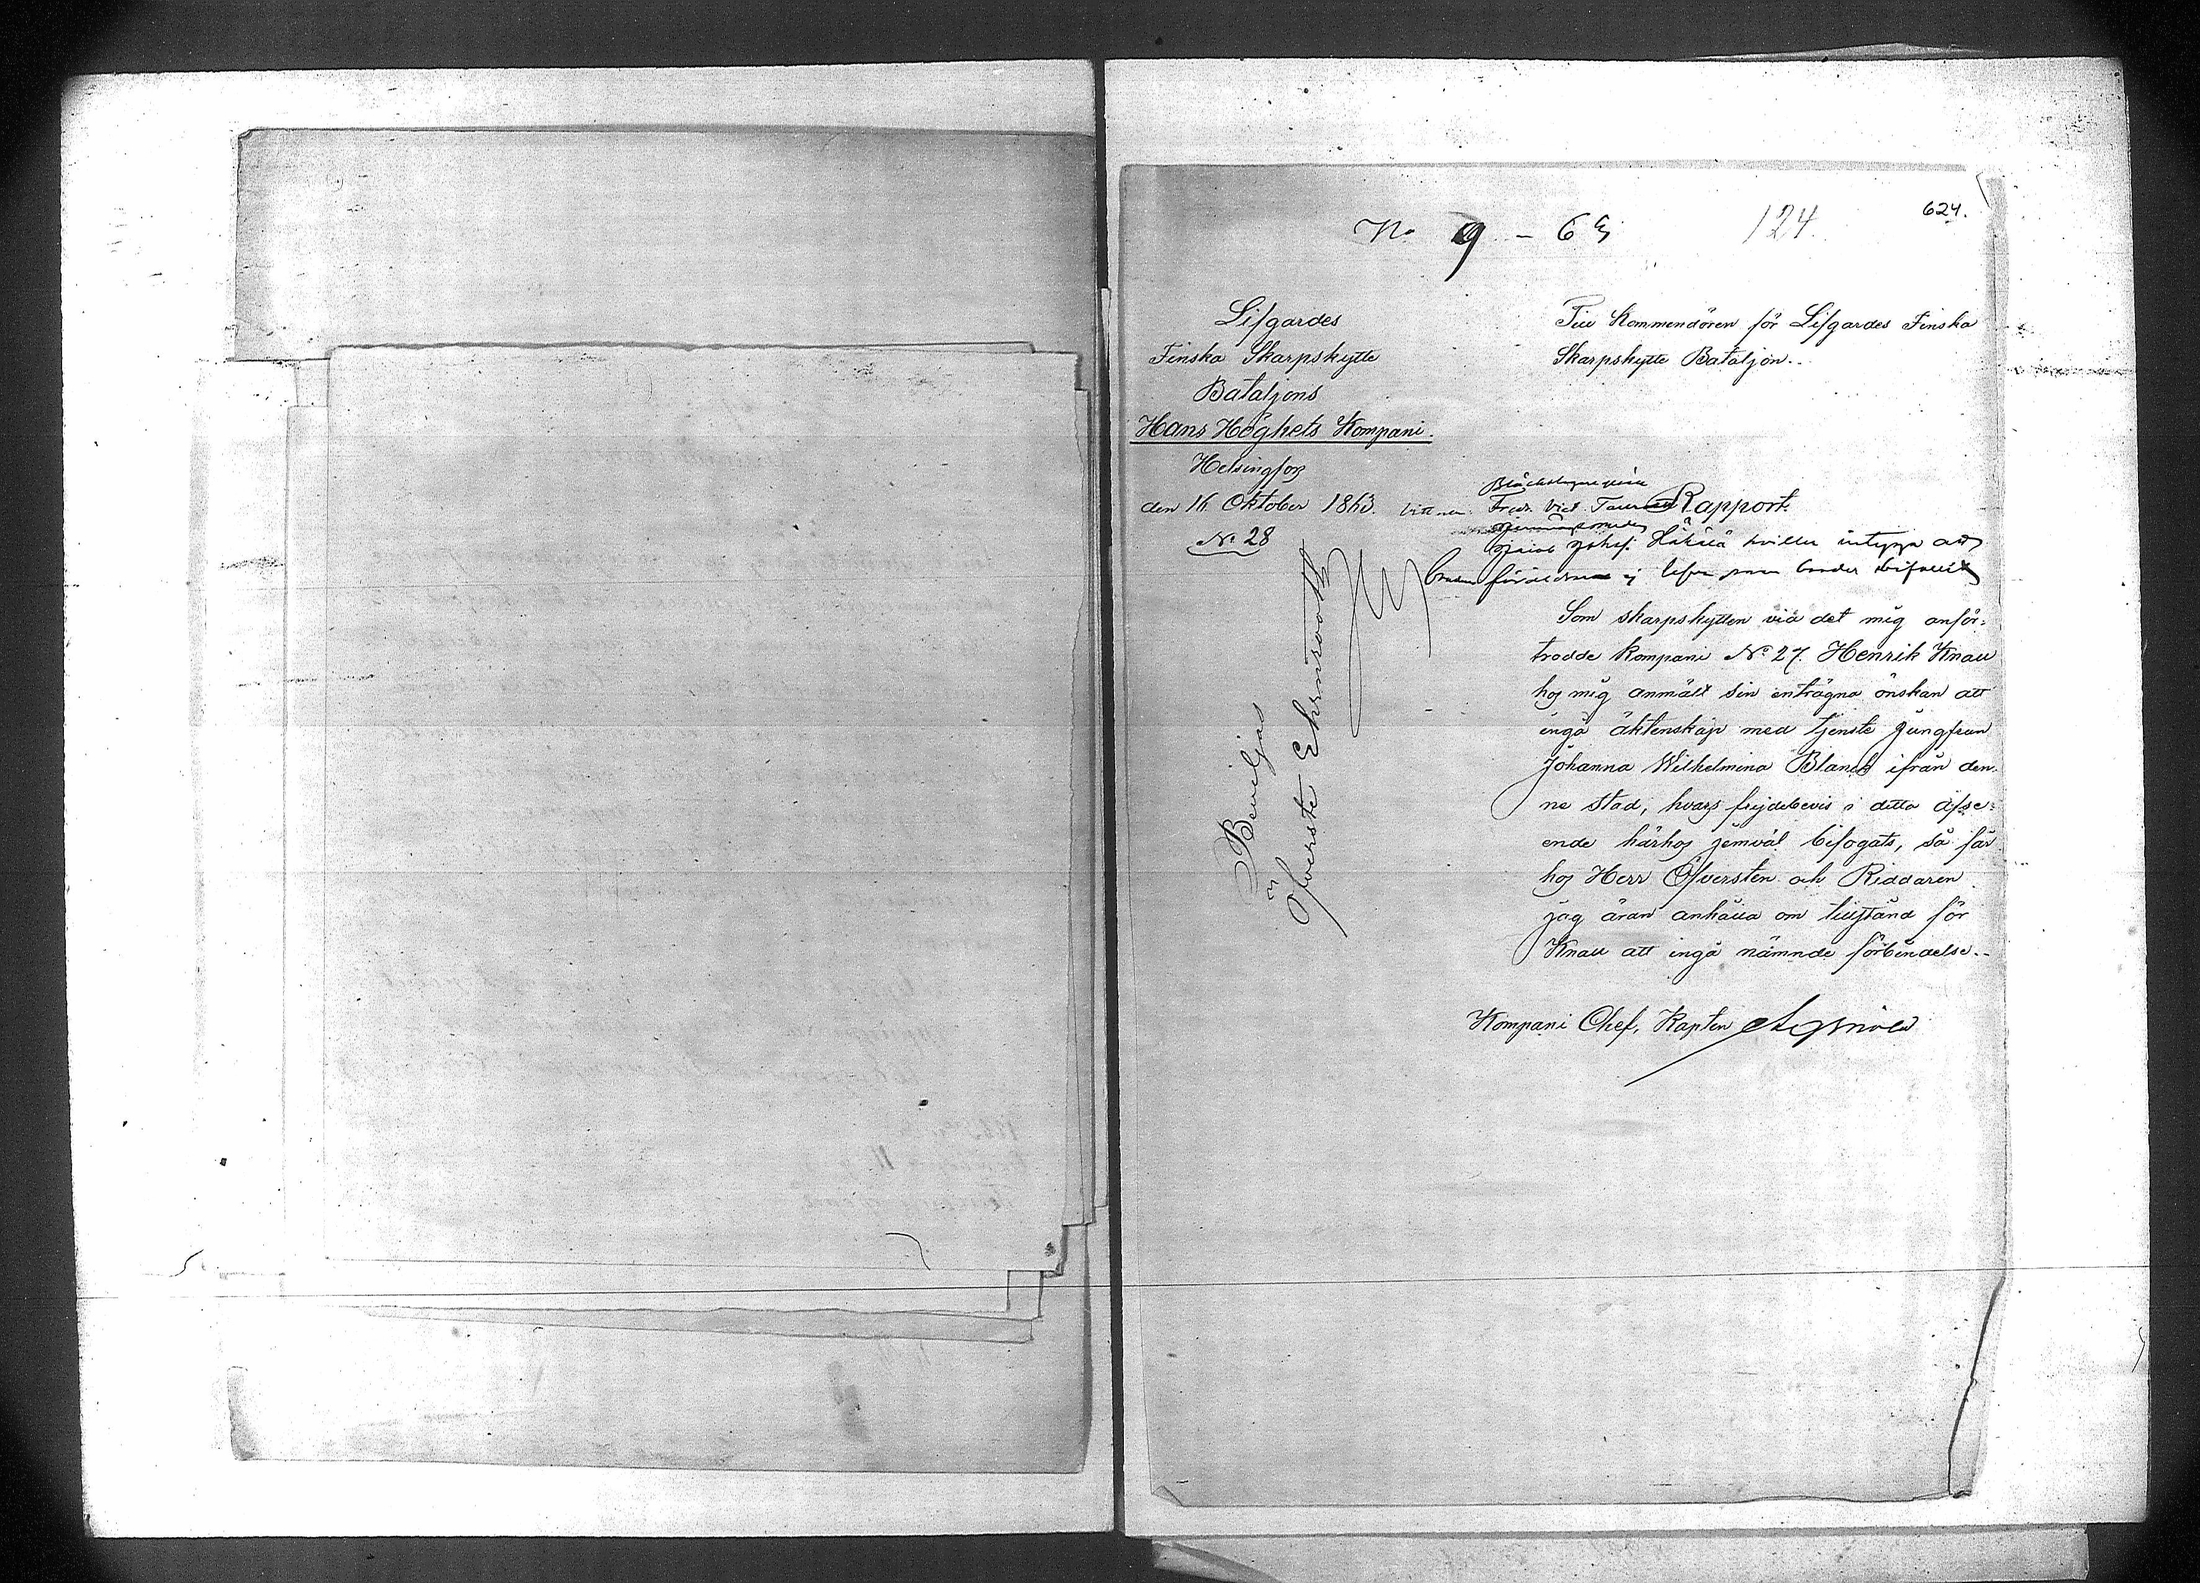 No 9 – 63
124
624.
Lifgardes
Finska Skarpskytte
Bataljons
Hans Höghets Kompani.
Helsingfors
den 16 Oktober 1863.
No 28
Till Kommendören för Lifgardes Finska
Skarpskytte Bataljon.
Rapport.
Fredr. Vict.
hvilka intyga att
föräldrar ej lefva
Som skarpskytten vid det mig anför-
trodde kompani No 27. Henrik Knall
hos mig anmält sin enträgna önskan att
ingå äktenskap med tjenste jungfrun
Johanna Wilhelmina Blanck ifrån den-
ne stad, hvars frejdebevis i detta afse-
ende härhos jemväl bifogats, så får
hos Herr Öfversten och Riddaren
jag äran anhålla om tillstånd för
Knall att ingå nämnde förbindelse.
Kompani Chef, Kapten
Beviljas
Öfverste Ehrnrooth